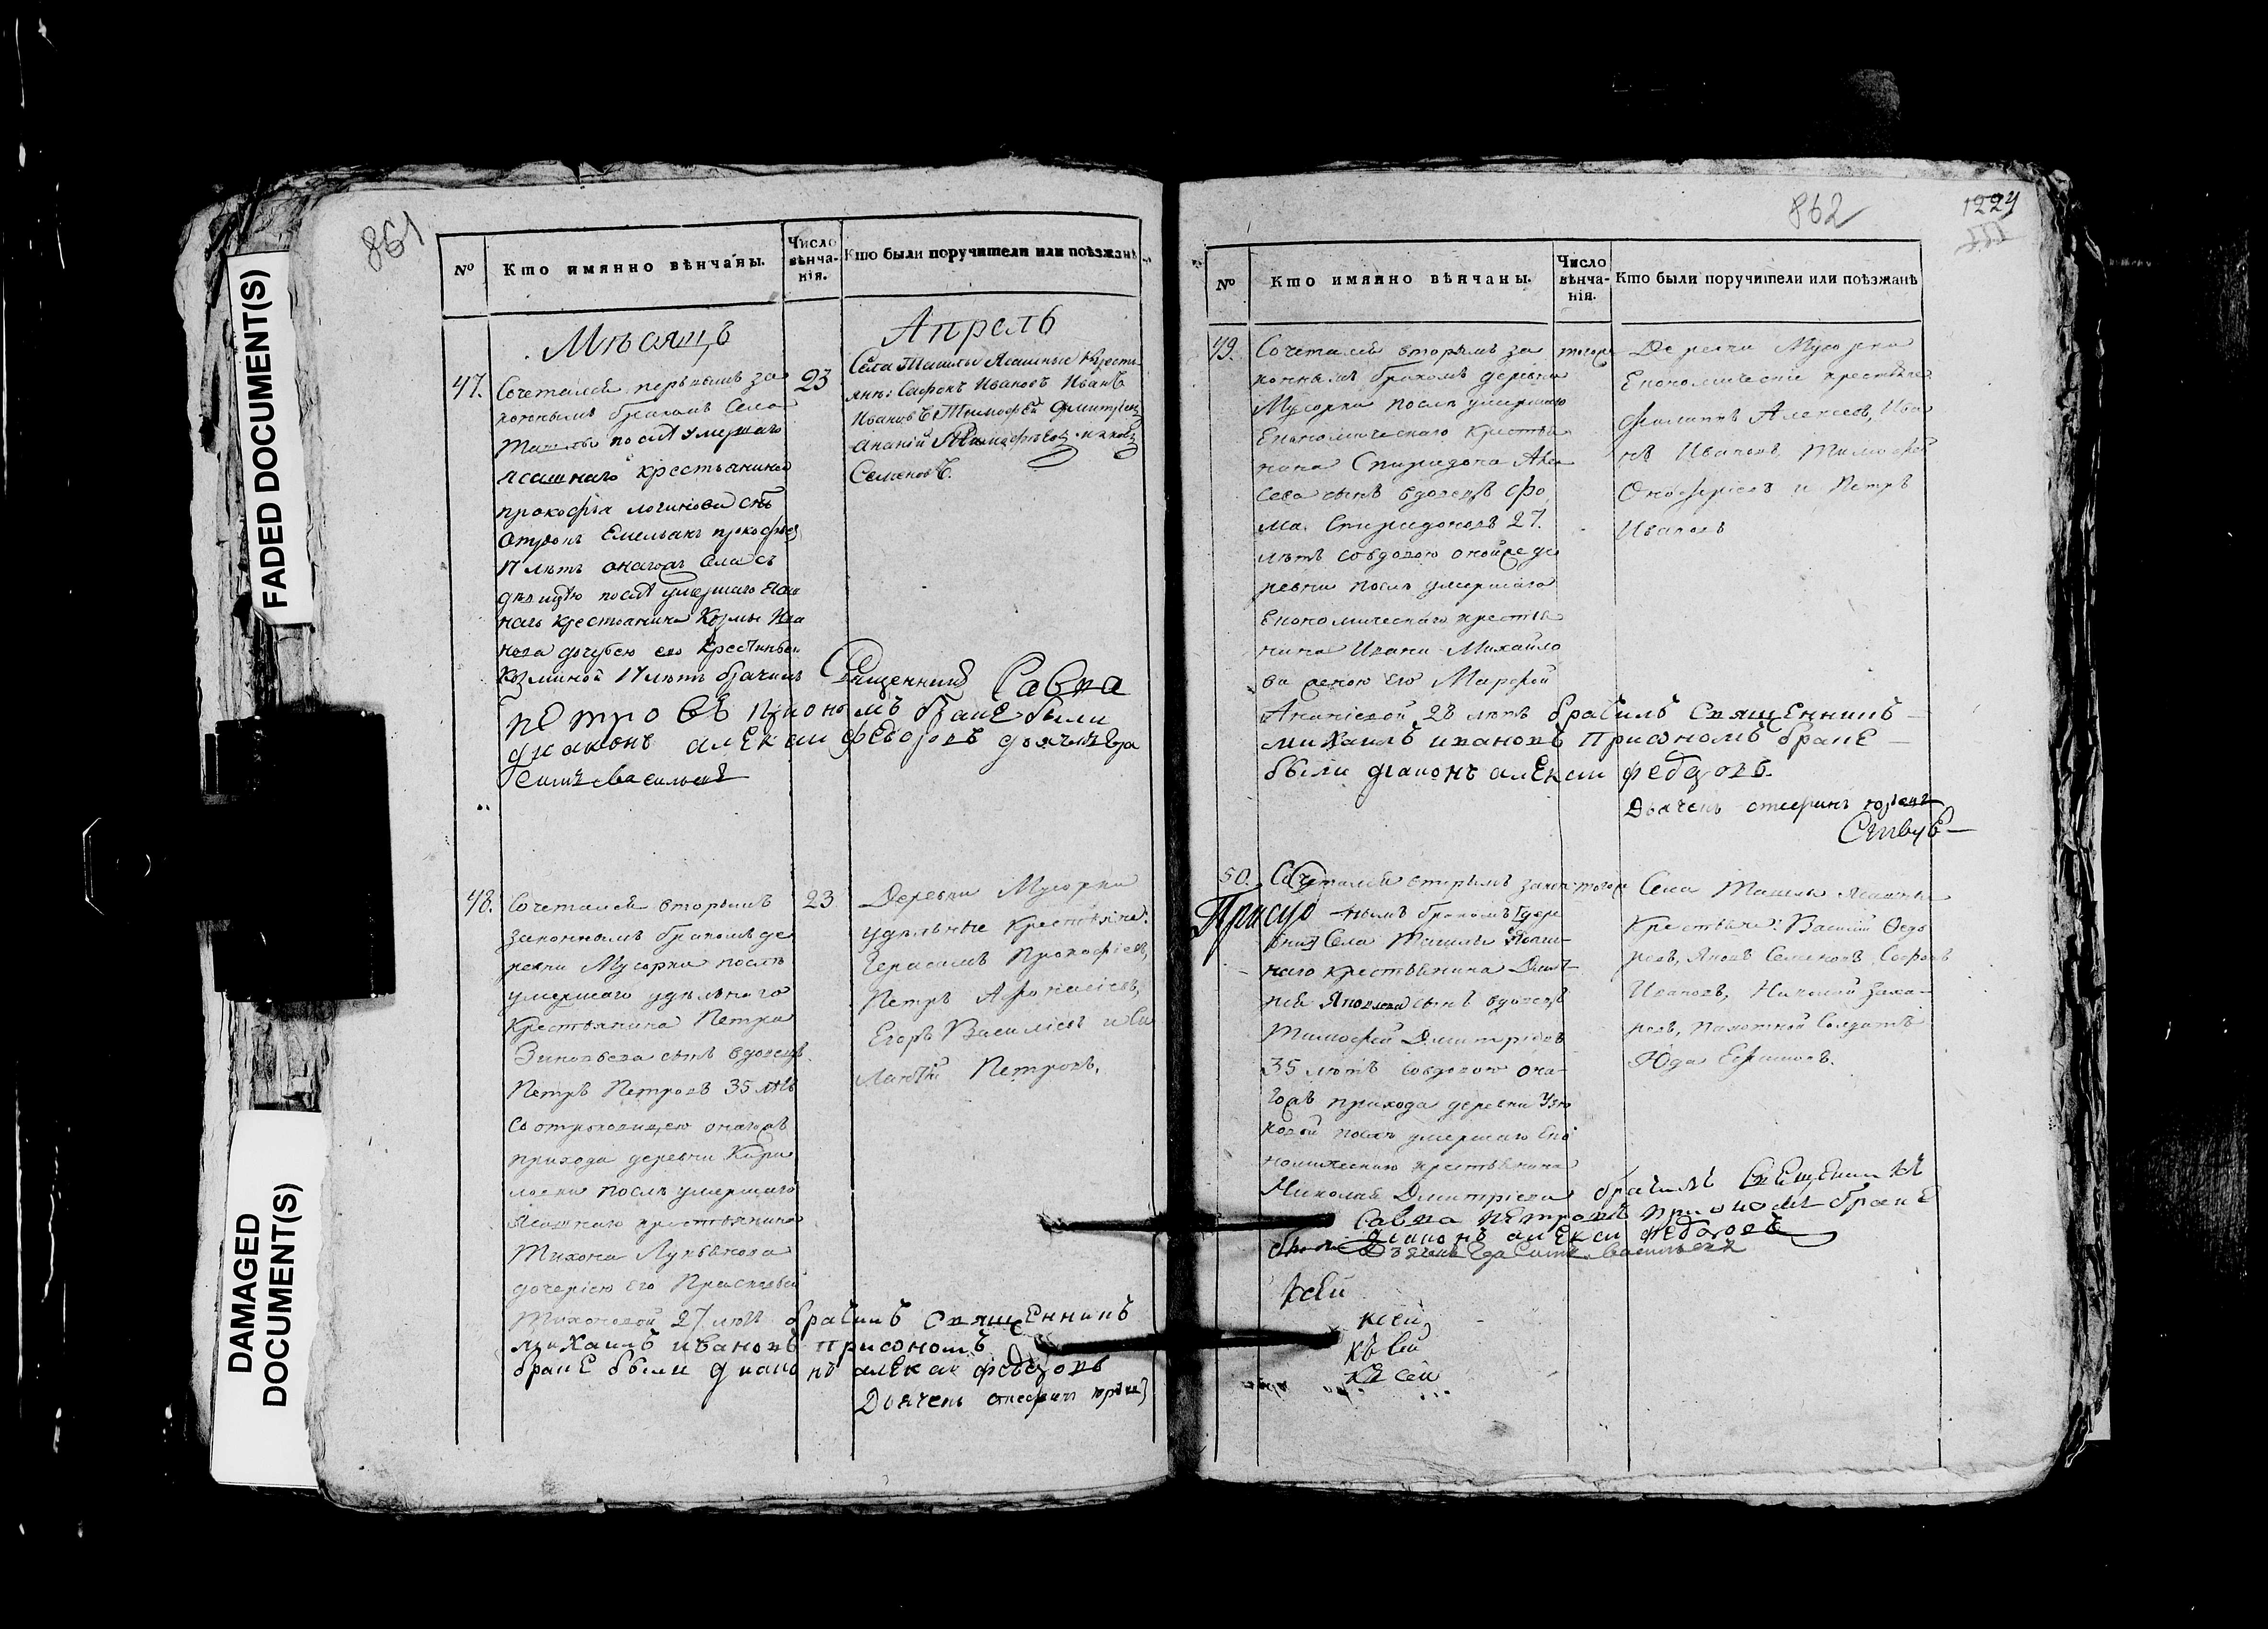 FADED DOCUMENT(S)
DAMAGED
DOCUMENT(S)
861
№
Кто имянно вѣнчаны.
Число
вѣнча-
нія.
Кто были поручители или поѣзжанѣ
Мѣсяцъ
Апрель
47.
Сочетался первымъ за
коннымъ бракомъ Села
Ташлы послѣ умершаго
ясашнаго крестьянина
прокофья логинова снъ
отрокъ Емельянъ прокофьев
17 лѣтъ онагожъ села съ
дѣвицею послѣ умершаго ясаш
наго крестьянина Козмы Ива
нова дочерью его
Козминой 17 лѣтъ брачилъ Священникъ Савва
петровъ приономъ браке были
диаконъ алексеи федоровъ дьячекъ Гера
симъ васильевъ
23
Села Ташлы Ясашные Кресть
яне: Сафонъ Ивановъ Иванъ
Ивановъ, Тимофей Дмитріевъ
Ананій Яковъ
Семеновъ.
48.
Сочетался вторымъ
законнымъ бракомъ де
ревни Мусорки послѣ
умершаго удѣльнаго
Крестьянина Петра
Зиновьева сынъ вдовецъ
Петръ Петровъ 35 лѣтъ
съ отроковицею онагожъ
прихода деревни Кири
ловки послѣ умершаго
Ясашнаго крестьянина
Тихона Лукьянова
дочерію его Прасковьей
Тихоновой 27 лѣтъ брачилъ священникъ
михаилъ ивановъ приономъ
браке были диаконъ алексеи федоровъ
Дьячекъ
23
Деревни Мусорки
удѣльные Крестьяне:
Герасимъ Прокофіевъ,
Петръ Афонасіевъ,
Егоръ Василіевъ и Си
Петровъ.
862
1224
№
Кто имянно вѣнчаны.
Число
вѣнча-
нія.
Кто были поручители или поѣзжанѣ
49.
Сочетался вторымъ за
коннымъ бракомъ деревни
Мусорки послѣ умершаго
Економическаго Крестья
нина Спиридона
сынъ вдовецъ Фо
ма Спиридоновъ 27.
лѣтъ совдовою онойже де
ревни послѣ умершаго
Економическаго крестья
нина Ивана Михайло
ва женою его Марфой
Ананіевой 28 лѣтъ брачилъ священникъ
михаилъ ивановъ приономъ браке
были диаконъ алексеи федоровъ
Дьячекъ
тогож
Деревни Мусорки
Економическіе крестьяне
Филипъ Алексеев, Ива
нъ Ивановъ, Тимофей
Онофріевъ и Петръ
Ивановъ
50.
Сочетался вторымъ закон
нымъ бракомъ [дере
вни] Села Ташлы Ясаш-
наго крестьянина Дмит
рія Яковлева сынъ вдовецъ
Тимофей Дмитріевъ
35 лѣтъ совдовою она-
гожъ прихода деревни Узю
ковой послѣ умершаго Еко
номическаго крестьянина
Николая Дмитріева брачилъ Священникъ
Савва петровъ приономъ браке
были диаконъ алексеи федоровъ
Дьячекъ Герасимъ васильевъ
тогож
Села Ташлы Ясашные
Крестьяне: Василій Ѳедо
ровъ, Яковъ Семеновъ, Сафонъ
Ивановъ, Николай Заха-
ровъ, Пахотной Солдатъ
Юда Ефимовъ.
ксеи
ксеи
къ сеи
къ сеи